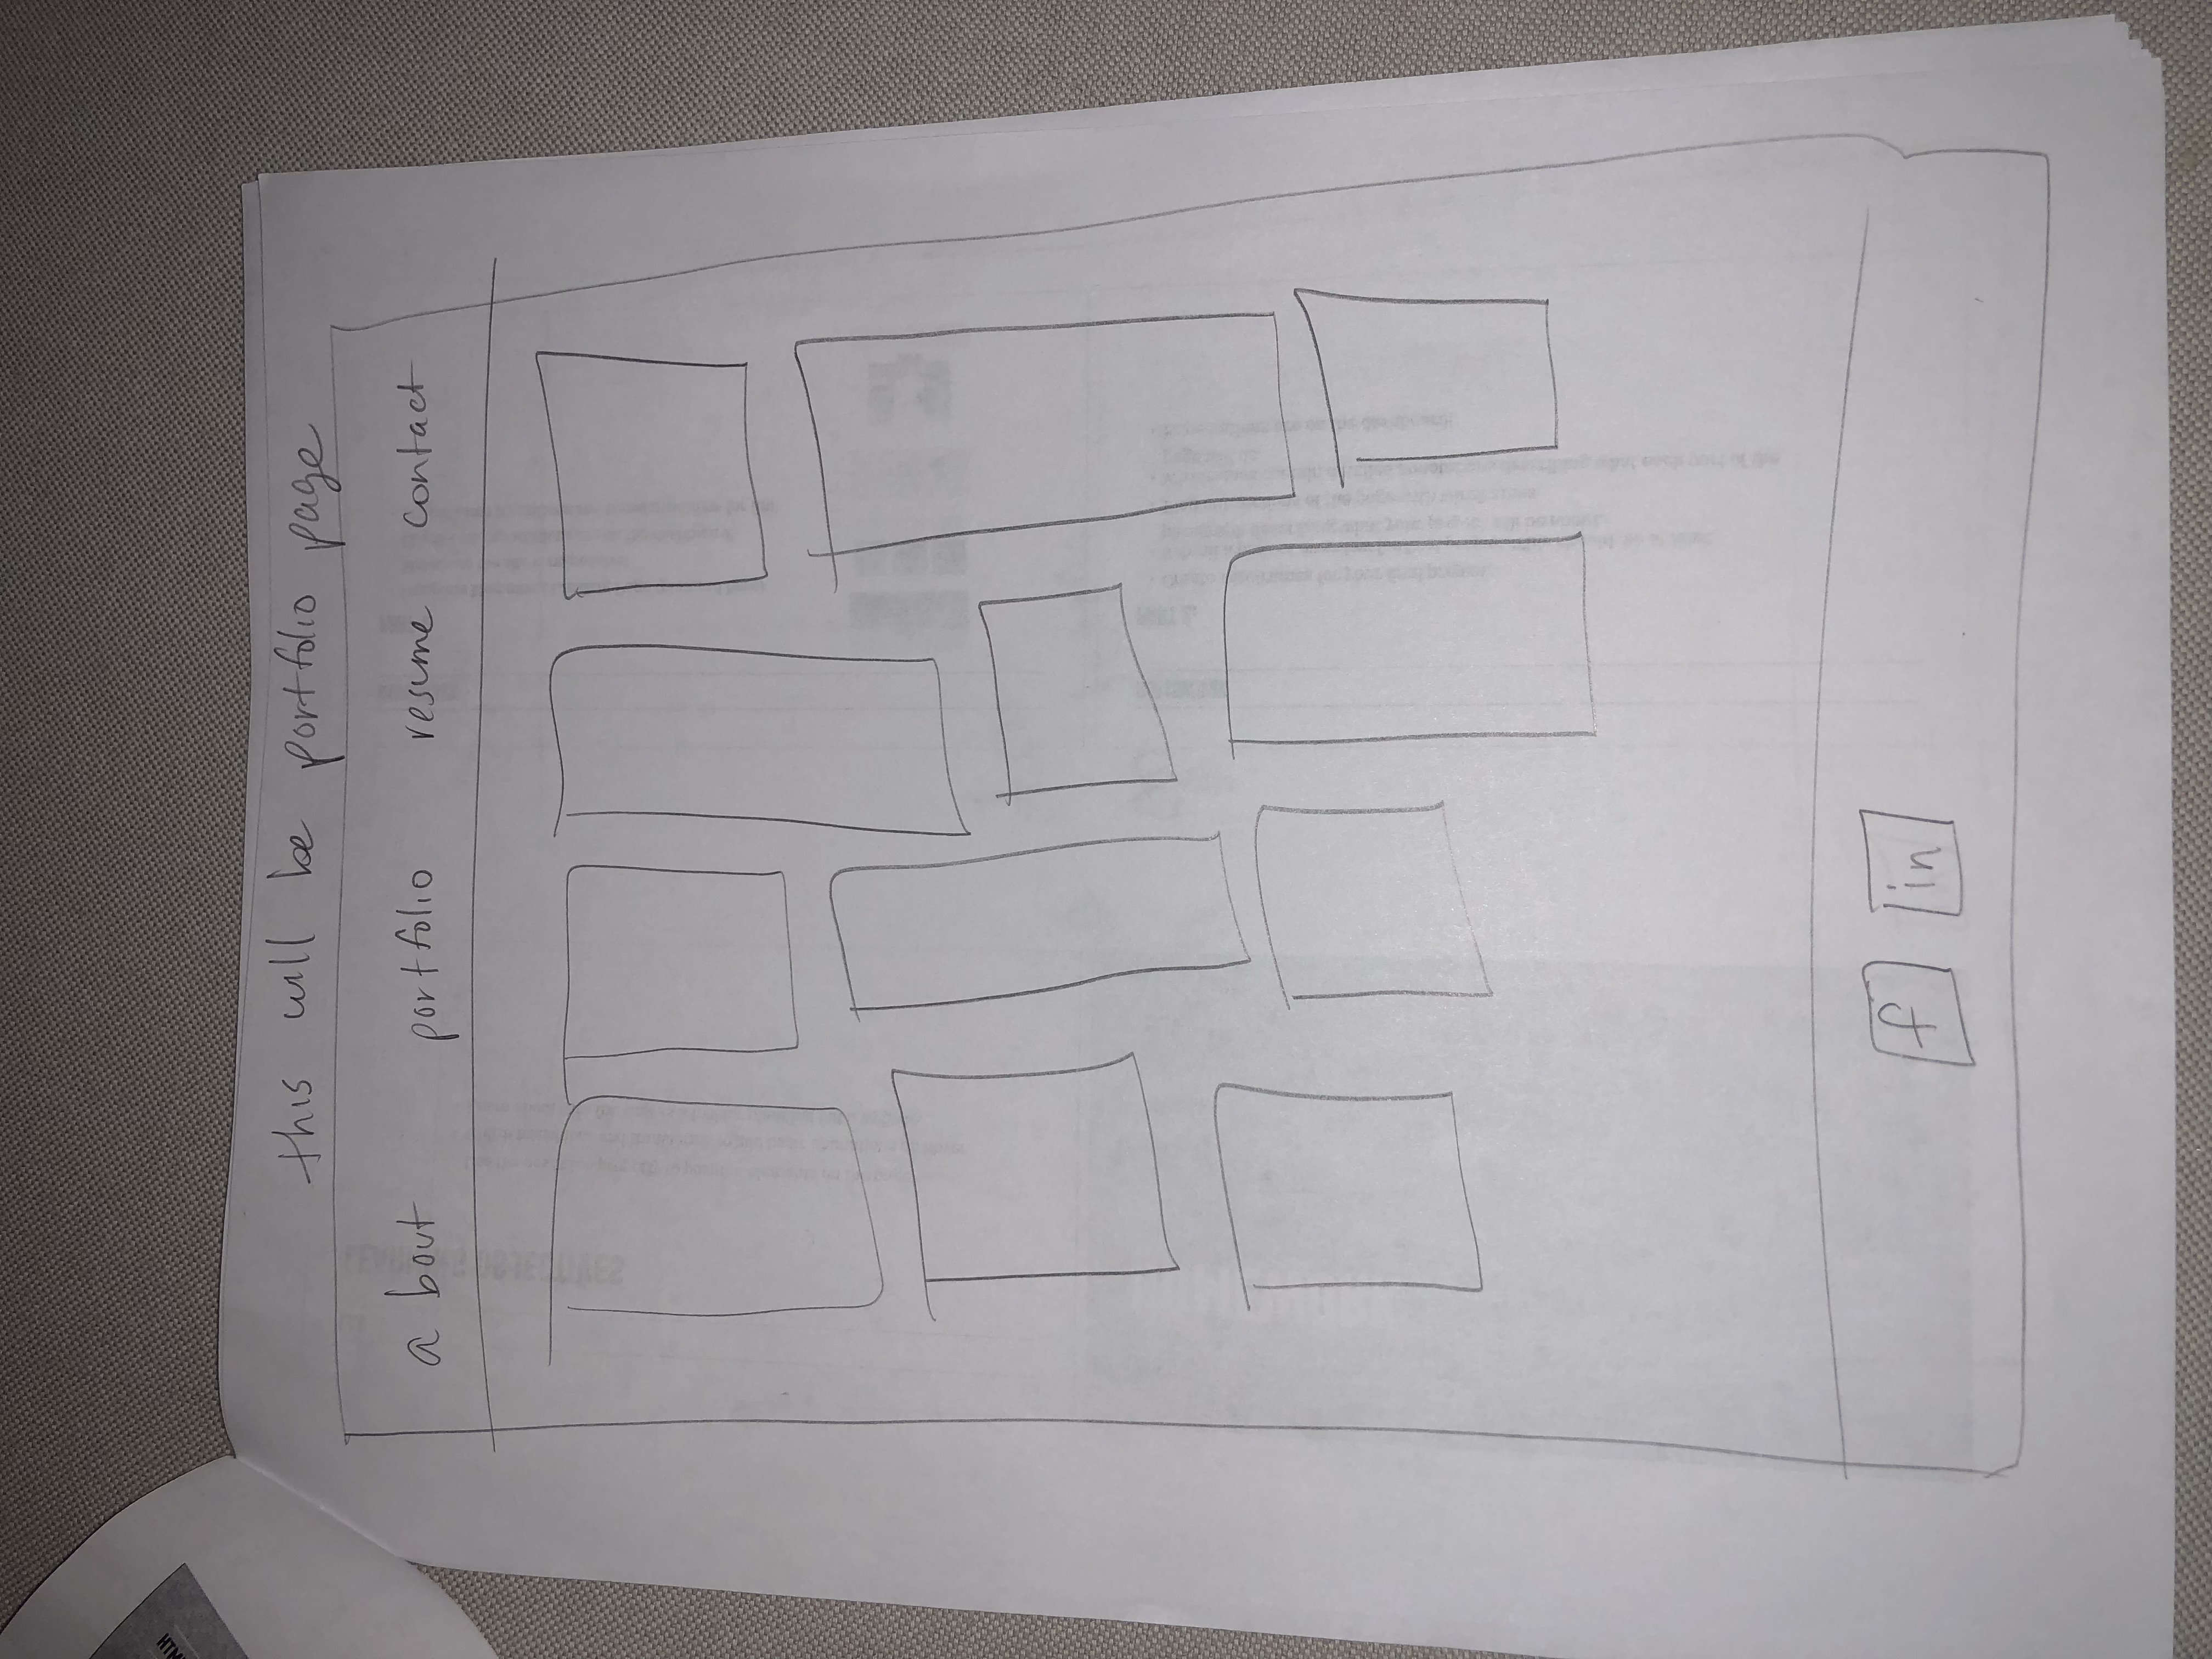 this will be portfolio page
about portfolio resume contact
f in